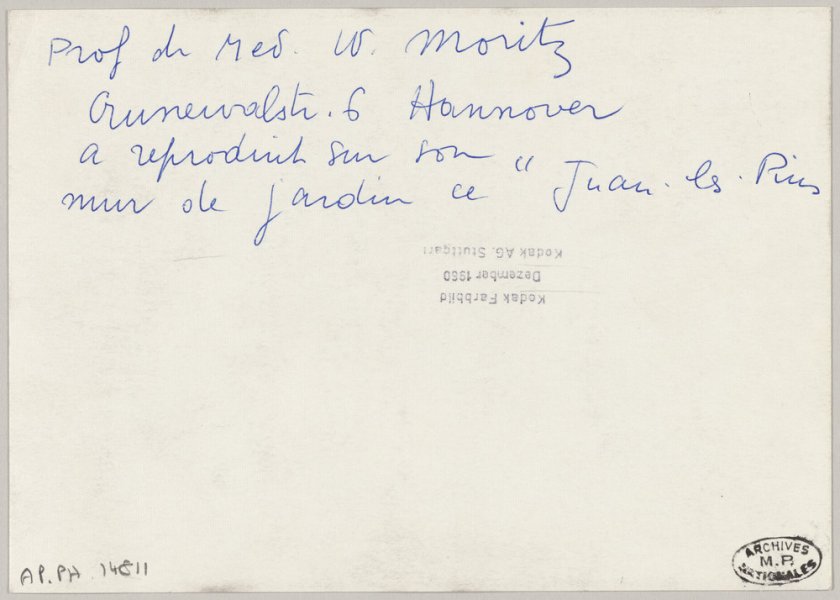 Prof dr Med. W. Moritz
Grunewalstr. 6 Hannover
a reproduit sur son
mur de jardin ce " Juan-les-Pins
Kodak Farbbild
Dezember 1960
Kodak AG. Stuttgart
AP.PH 14811
ARCHIVES
M.P.
NATIONALES